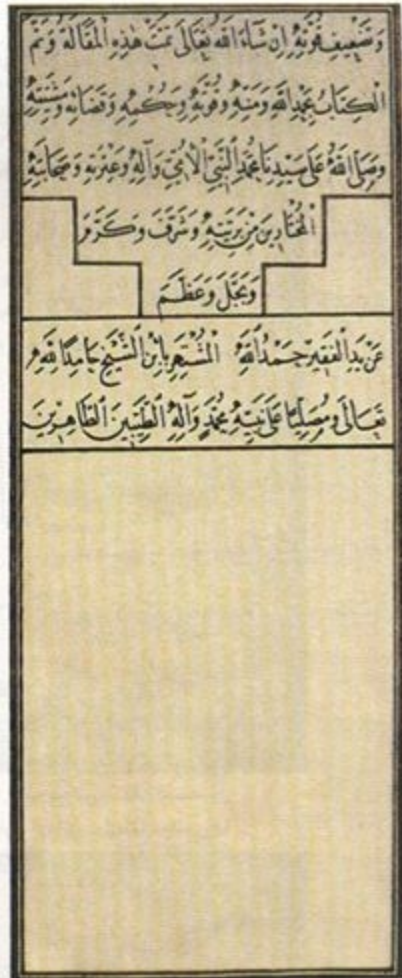 وَتَضْعِيفِ قُوَّتِهِ إِنْ شَاءَ اللهُ تَعَالَى تَمَّتْ هٰذِهِ الْمَقَالَةُ وَتَمَّ
الْكِتَابُ بِحَمْدِ اللهِ وَمَنِّهِ وَقُوَّتِهِ وَحُكْمِهِ وَقَضَائِهِ وَمَشِيَّتِهِ
وَصَلَّى اللهُ عَلَى سَيِّدِنَا مُحَمَّدٍ النَّبِيِّ الْأُمِّيِّ وَآلِهِ وَعِتْرَتِهِ وَصَحَابَتِهِ
الْمُخْتَارِينَ مِنْ بَرِيَّتِهِ وَشَرَّفَ وَكَرَّمَ
وَبَجَّلَ وَعَظَّمَ
عَنْ يَدِ الْفَقِيرِ حَمْدُ اللهِ الْمُشْتَهِرِ بِابْنِ الشَّيْخِ حَامِدًا لِلّٰهِ
تَعَالَى وَمُصَلِّيًا عَلَى نَبِيِّهِ مُحَمَّدٍ وَآلِهِ الطَّيِّبِينَ الطَّاهِرِينَ